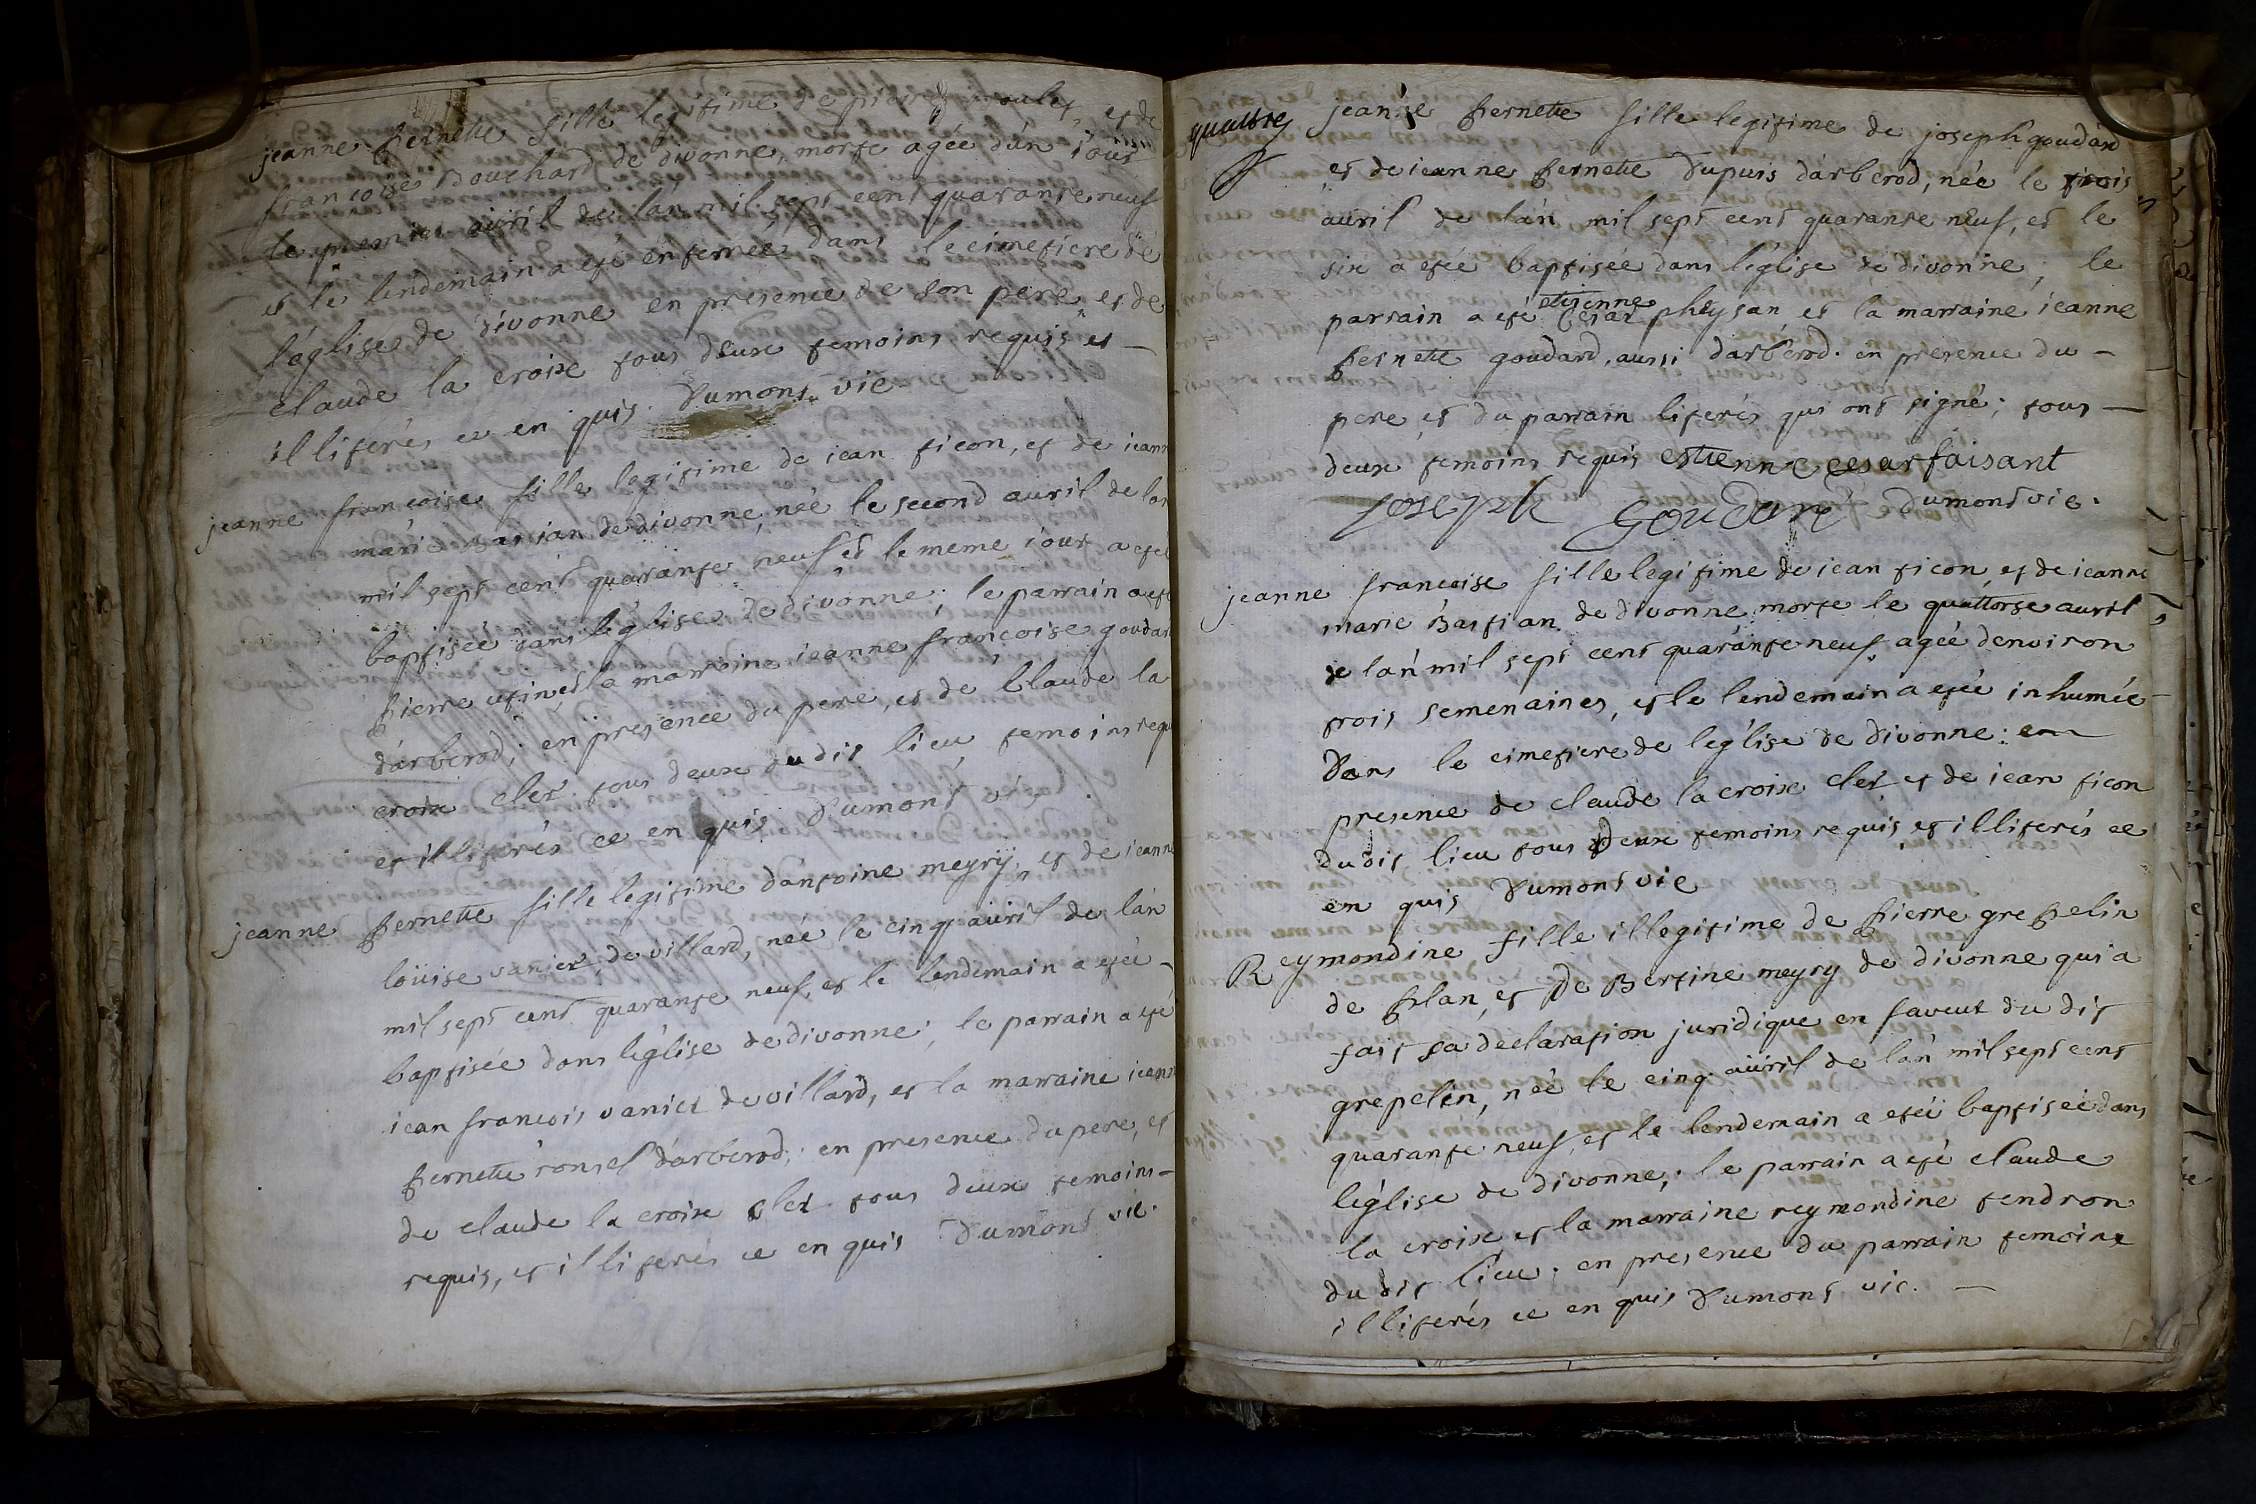 jeanne pernette fille legitime de pierre roulet, et de
francoise Bouchard de divonne, morte agée d'un iour
le premier avril de l'an mil sept cent quarante neuf
et le lendemain a eté enterrée dans le cimetiere de
l'église de divonne en presence de son pere, et de
claude la croix tous deux temoins requis et
illiterés ce en quis Dumont vic
jeanne francoise fille legitime de iean ticon, et de ieanne
marie Bastian de divonne, née le second auril de l'an
mil sept cent quarante neuf et le meme iour a eté
baptisée dans l'église de divonne; le parrain a eté
pierre utin, et la marraine ieanne francoise goudard
d'arberod; en presence du pere, et de Claude la
croix cler tous deux dudit lieu temoins requis
et illiterés ce en quis Dumont vic.
jeanne pernette fille legitime d'antoine meyry, et de ieanne
loüise vanier de villard, née le cinq auril de l'an
mil sept cent quarante neuf, et le lendemain a etée
baptisée dans l'église de divonne; le parrain a eté
iean francois vanier de villard, et la marraine ieanne
pernette ronsel d'arberod; en presence du pere, et
de claude la croix cler tous deux temoins
requis, et illiterés ce en quis Dumont vic.
quattre
jeanne pernette fille legitime de joseph goudard
et de ieanne pernette Dupuis d'arberod, née le trois
auril de l'an mil sept cent quarante neuf, et le
six a etée baptisée dans l'église de divonne; le
parrain a eté etienne Cesar pheysan et la marraine ieanne
pernette goudard, aussi d'arberod. en presence du
pere et du parrain literés qui ont signé; tous
deux temoins requis estienne cesar faisant
Joseph Goudard Dumont vic.
jeanne francoise fille legitime de iean ticon, et de ieanne
marie Bastian de divonne morte le quattorse auril
de l'an mil sept cent quarante neuf agée denviron
trois semenaines, et le lendemain a etée inhumée
Dans le cimetiere de l'église de divonne: en
presence de claude la croix cler et de iean ticon
dudit lieu tous deux temoins requis et illiterés ce
en quis Dumont vic
Reymondine fille illegitime de pierre grepelin
de plan, et De Bertine meyry de divonne qui a
fait sa declaration juridique en faveur du dit
grepelin, née le cinq auril de l'an mil sept cent
quarante neuf, et le lendemain a etée baptisée dans
l'église de divonne; le parrain a eté claude
la croix, et la marraine reymondine tendron
du dit lieu; en presence du parrain temoins
illiterés ce en quis Dumont vic.